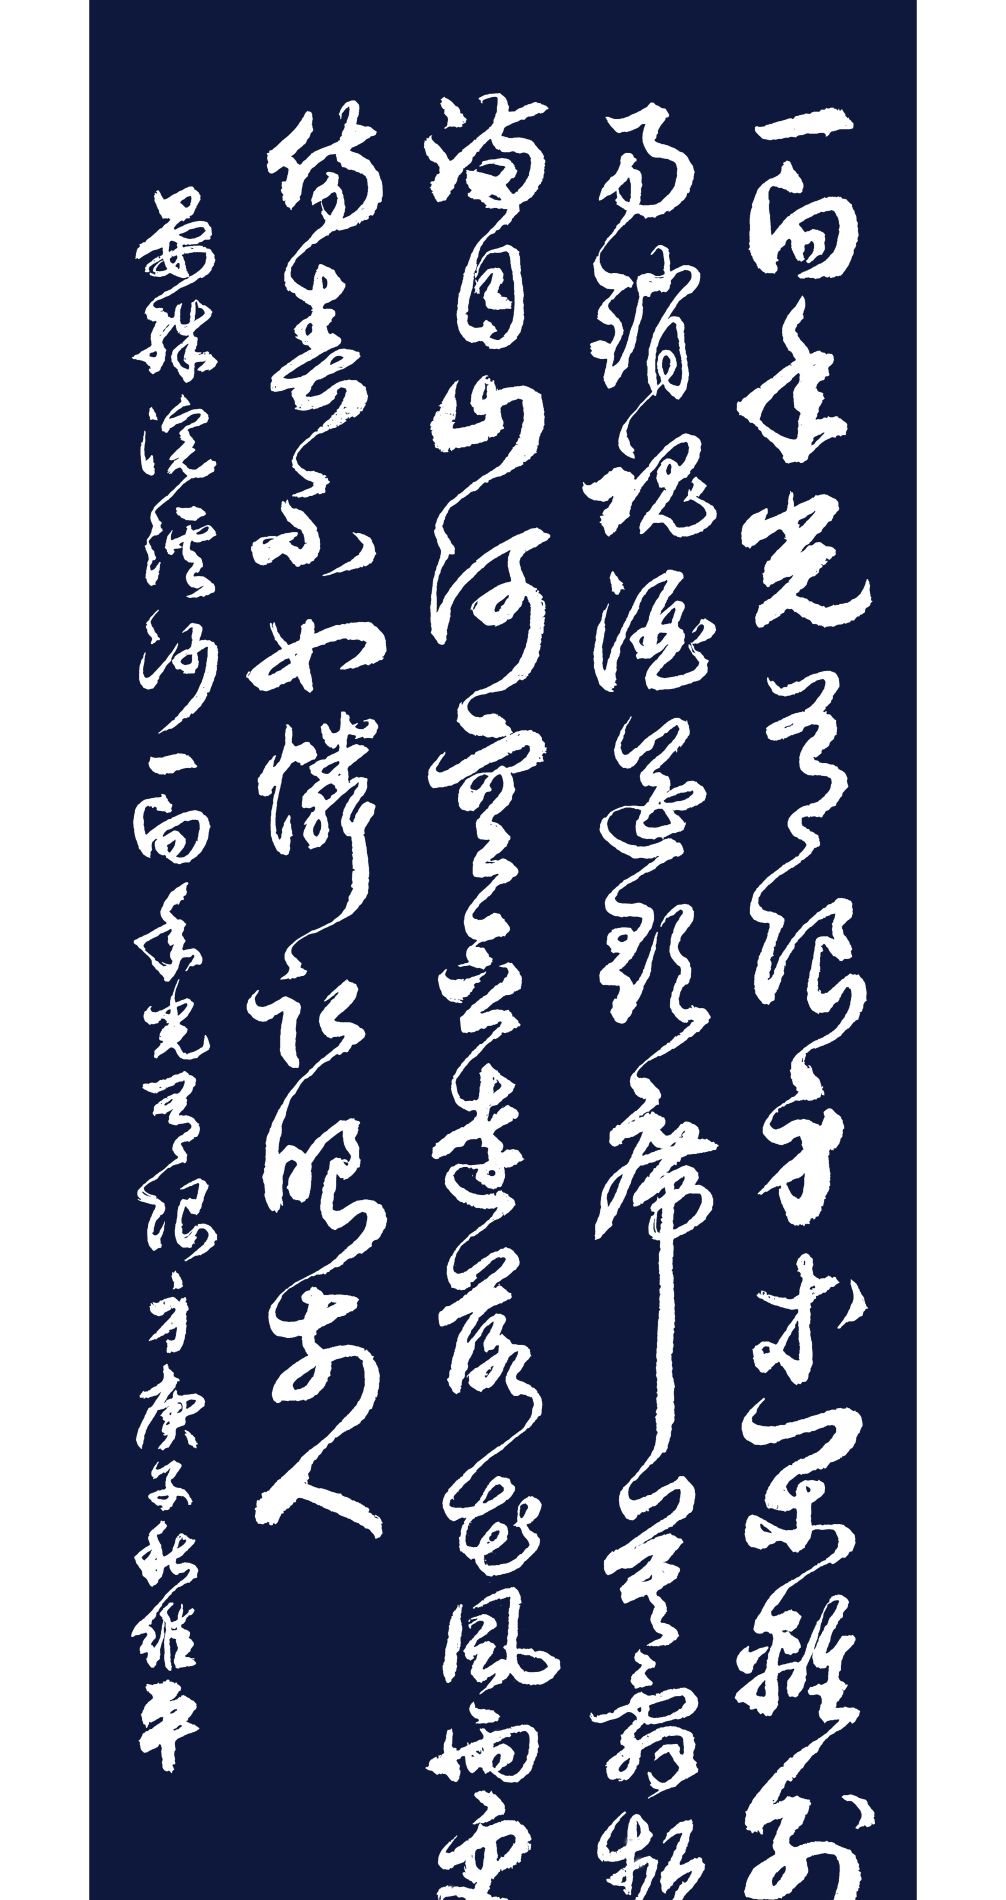 一向年光有限身等闲離别
易銷魂酒筵歌席莫辭頻
滿目山河空念遠落花風雨更
傷春不如憐取眼前人
晏殊浣溪沙一向年光有限身庚子秋維平